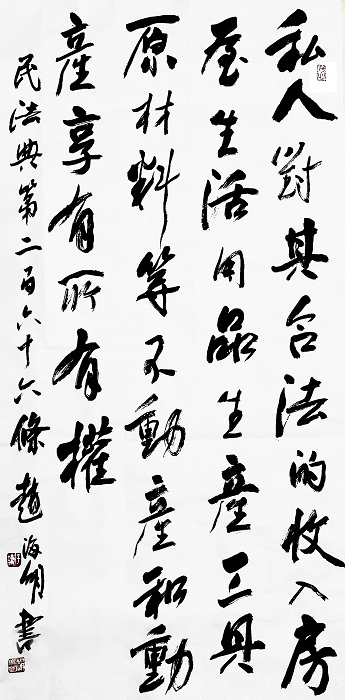 私人對其合法的收入房
屋生活用品生產工具
原材料等不動產和動
產享有所有權
民法典第二百六十六條 趙海明書